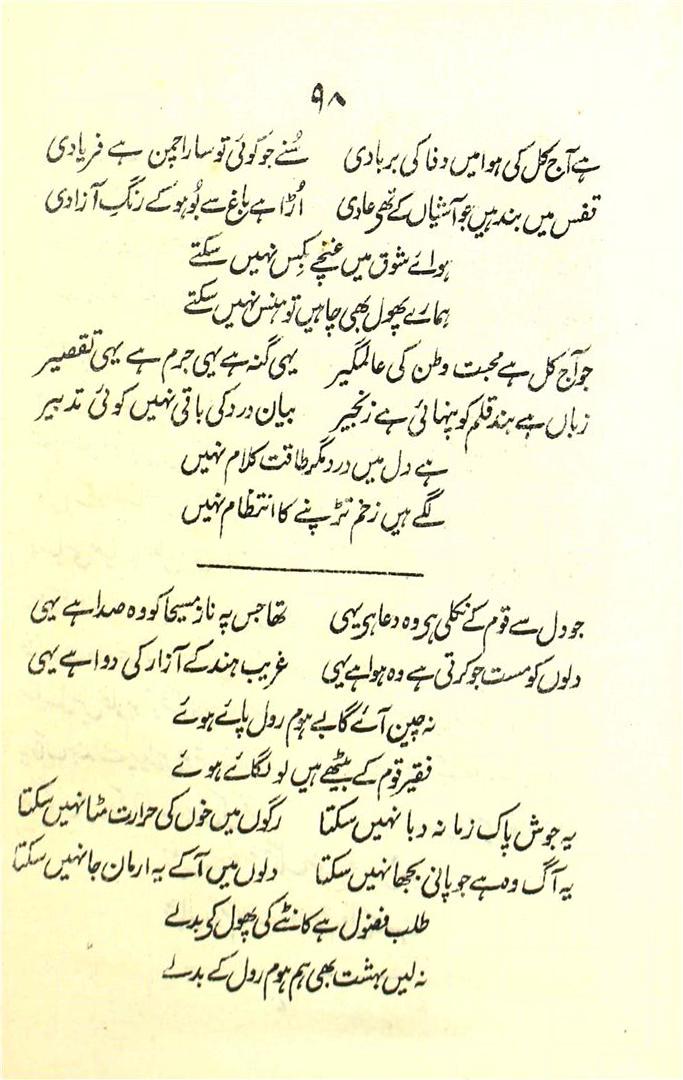 ۹۸
ہے آج کل کی ہوا میں وفا کی بربادی سُنے جو کوئی تو سارا چمن ہے فریادی
قفس میں بند ہیں جو آشیاں کے تھے عادی اُڑا ہے باغ سے بُو ہو کے رنگِ آزادی
ہوائے شوق میں غنچے بِکس نہیں سکتے
ہمارے پھول بھی چاہیں تو ہنس نہیں سکتے
جو آج کل ہے محبت وطن کی عالمگیر یہی گنہ ہے یہی جرم ہے یہی تقصیر
زباں ہے بند قلم کو پنہائی ہے زنجیر بیان درد کی باقی نہیں کوئی تدبیر
ہے دل میں درد مگر طاقت کلام نہیں
لگے ہیں زخم تڑپنے کا انتظام نہیں
جو دل سے قوم کے نکلی ہی وہ دعا ہی یہی تھا جس پہ ناز مسیحا کو وہ صدا ہے یہی
دلوں کو مست جو کرتی ہے وہ ہوا ہے یہی غریب ہند کے آزار کی دوا ہے یہی
نہ چین آئے گا بے ہوم رول پائے ہوئے
فقیر قوم کے بیٹھے ہیں لو لگائے ہوئے
یہ جوش پاک زمانہ دبا نہیں سکتا رگوں میں خوں کی حرارت مٹا نہیں سکتا
یہ آگ وہ ہے جو پانی بجھا نہیں سکتا دلوں میں آ کے یہ ارمان جا نہیں سکتا
طلب فضول ہے کانٹے کی پھول کی بدلے
نہ لیں بہشت بھی ہم ہوم رول کے بدلے